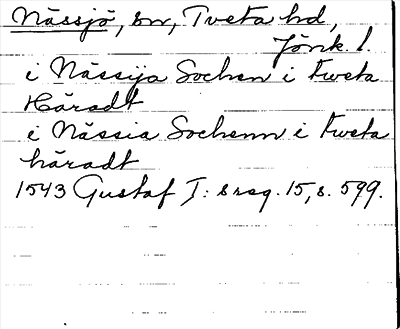 Nässjö, sn, Tveta hd,
Jönk. l.
i Nässija Sochen i Tweta
Häradt
i Nässia Sochenn i Tweta
häradt
1543 Gustaf I: s reg. 15, s. 599.